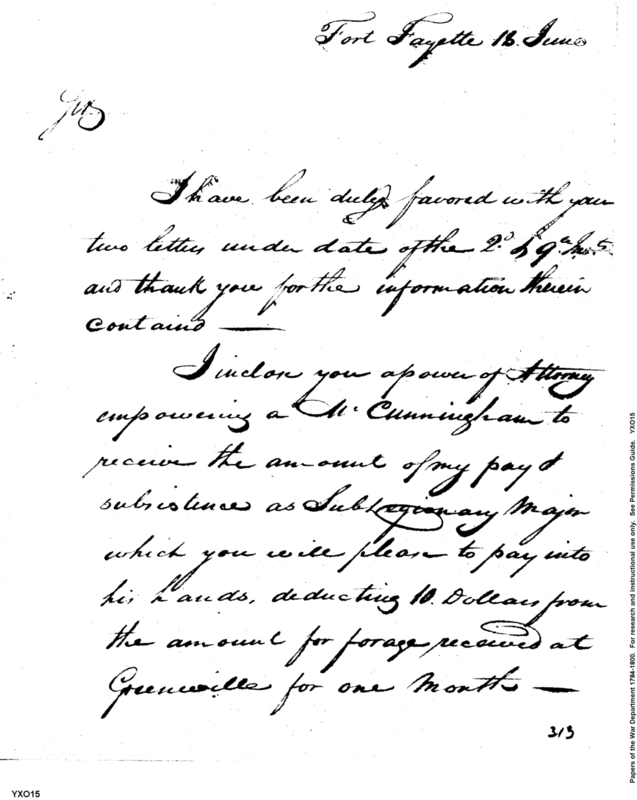 Fort Fayette 18 June
Sir
I have been duly favored with your
two letters under date of the 2d & 9th Inst
and thank you for the information therein
containd —
I inclose you a power of Attorney
empowering a Mr Cunningham to
receive the amount of my pay &
subsistence as Sub Legionary Major
which you will please to pay into
his hands, deducting 10 Dollars from
the amount for forage received at
Greenville for one Month —
313
YXO15
Papers of the War Department 1784-1800. For research and instructional use only. See Permissions Guide. YXO15